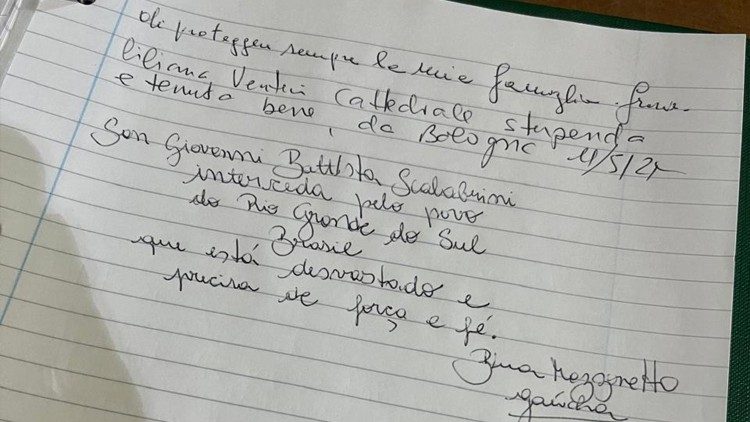 di proteggere sempre la mia famiglia. Grazie.
Liliana Venturi Cattedrale stupenda
e tenuta bene, da Bologna 11/5/24
San Giovanni Battista Scalabrini
interceda pelo povo
do Rio Grande do Sul
Brasile
que está desvastado e
precisa de força e fé.
gaúcha